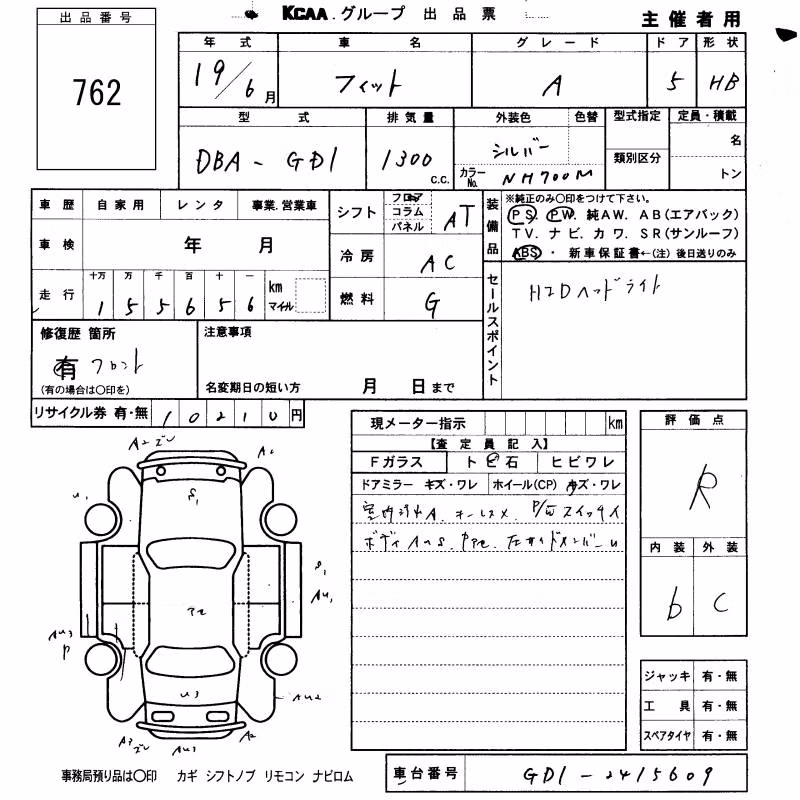 出品番号
762
KCAA.グループ 出品票
主催者用
年式 車名 グレード ドア 形状
19/6月 フィット A 5 HB
型式 排気量 外装色 色替 型式指定 定員・積載
DBA-GD1 1300 c.c. シルバー 名
カラーNo. NH700M 類別区分 トン
車歴 自家用 レンタ 事業.営業車
車検 年 月
走行 十万 万 千 百 十 一 km マイル
1 5 5 6 5 6
シフト フロア コラム パネル AT
冷房 AC
燃料 G
装備品
※純正のみ〇印をつけて下さい。
PS. PW. 純AW. AB(エアバック)
TV. ナビ. カワ. SR(サンルーフ)
ABS・ 新車保証書←(注) 後日送りのみ
セールスポイント
HIDヘッドライト
修復歴 箇所
有 フロント
(有の場合は〇印を)
注意事項
名変期日の短い方 月 日まで
リサイクル券 有・無 10210円
現メーター指示 km
【査定員記入】
Fガラス トビ石 ヒビワレ
ドアミラー キズ・ワレ ホイール(CP) キズ・ワレ
P/W スイッチ
ボディ
評価点
R
内装 外装
b C
ジャッキ 有・無
工具 有・無
スペアタイヤ 有・無
A2 A2
S1
U1
S1
AU1
AU3
P
U3
AU2
A3 AU3 A2
事務局預り品は〇印 カギ シフトノブ リモコン ナビロム
車台番号 GD1-2415609